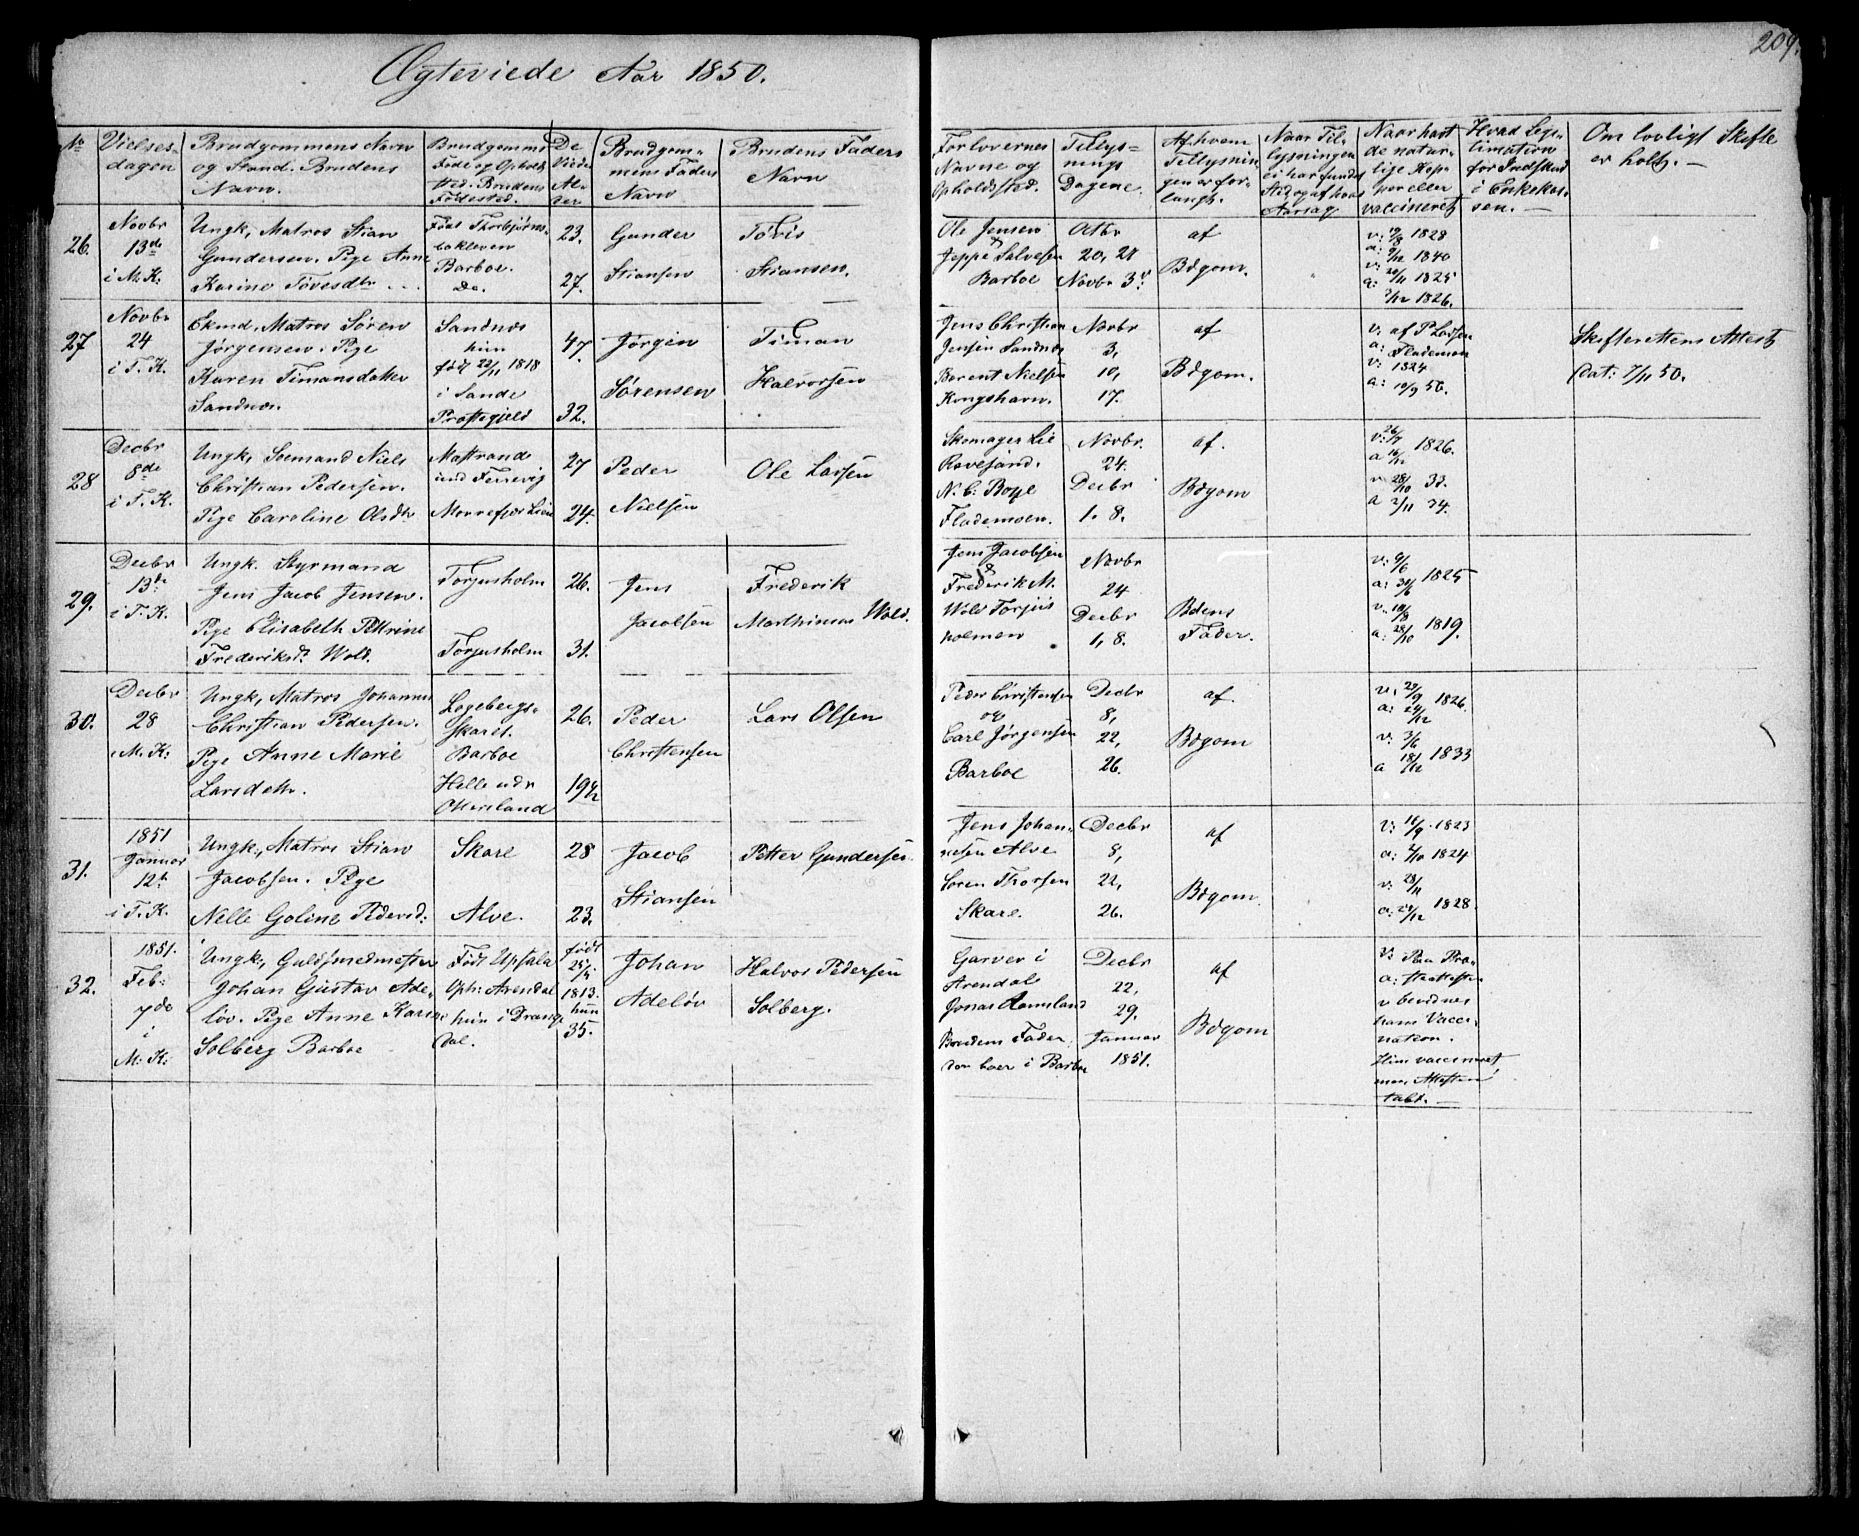 209.
Ægteviede Aar 1850.
No
Vielses-
dagen
Brudgommens Navn
og Stand. Brudens
Navn.
Brudgommens
Føde og Opholds
sted. Brudens
Fødested.
De
Viedes
Al-
der
Brudgom-
mens Faders
Navn
Brudens Faders
Navn
Forlovernes
Navne og
Opholdsted.
Tillys-
nings
Dagene.
Af hvem
Tillysnin-
gen er for-
langt.
Naar Til-
lysningen
ei har fundet
Sted og af hvad
Aarsag
Naar havt
de natur-
lige Kop-
per eller
vaccineret
Hvad Legi-
timation
for Indskud
i Enkekas-
sen.
Om lovligt Skifte
er holdt.
26.
Novbr
13de
i M. K.
Ungk, Matros Stian
Gundersen. Pige Anne
Karine Tövesdtr
Barboe.
Do.
23.
27.
Gunder
Stiansen
Tövis
Stiansen.
Ole Jensen
&
Jeppe Salvesen
Barboe
Octbr
20, 27
Novbr 3.
af
Bdgom.
1828
a: 1840
v: 20/11 1825
a: 1826.
27
Novbr
24
i T. K.
Ekmd, Matros Sören
Jörgensen. Pige
Karen Timansdatter
Sandnes.
Sandnes
hun
født 22/11 1818
i Sande
Præstegjeld
47.
32.
Jörgen
Sörensen
Timan
Halvorsen
Jens Christian
Jensen Sandnes
Berent Nielsen
Kongshavn.
Novbr
3,
10,
17.
af
Bdgom.
v. af P Larsen
a: Flademoen
v: 1824
a: 10/9 50.
Skifterettens Attest
dat: 7/11 50.
28
Decbr
8de
i T. K.
Ungk, Soemand Niels
Christian Pedersen.
Pige Caroline Olsdtr
27
24.
Peder
Nielsen
Ole Larsen
Skomager Lie
N. C. Boye
Flademoen.
Novbr.
24.
Decbr
1, 8.
af.
Bdgom
v: 26/7 1826.
a 16/12
v 28/10 33.
a 2/11 34.
29.
Decbr
13de
i T. K.
Ungk. Styrmand
Jens Jacob Jensen.
Pige Elisabeth Petrine
Frederiksd. Wold.
Torjusholm
Torjusholm
26.
31.
Jens
Jacobsen
Frederik
Marthinus Wold.
Jens Jacobsen
&
Frederik M.
Wold Torjus
holmen
Novbr
24
Decbr
1, 8.
Bdens
Fader.
v: 9/6
a: 1825
v. 10/8
a: 28/10 1819.
30.
Decbr
28
M. K.
Ungk, Matros Johannes
Christian Pedersen.
Pige Anne Marie
Larsdatr.
Skaret.
Barboe
Helle udr
Ottersland
26.
19 1/2
Peder
Christensen
Lars Olsen
Peder Christensen
og
Carl Jørgensen
Barboe
Decbr
8,
22,
26.
af
Bdgom
v. 29/9 1826.
a: 24/12
v: 3/6
a 18/12 1833
31.
1851
Januar
12te
i T. K.
Ungk, Matros Stian
Jacobsen. Pige
Nelle Goline Pedersd:
Skare
Alve.
28
23.
Jacob
Stiansen
Petter Gundersen.
Jens Johan-
nesen Alve
Søren Thorsen
Skare.
Decbr
8,
22,
26.
af
Bdgom.
v: 11/9 1823
a: 2/10 1824
v: 28/11
a: 21/12 1828.
32.
1851.
Feb:
7de
i
M. K:
Ungk, Guldsmedmester
Johan Gustav Ade-
löv. Pige Anne Karine
Solberg Barboe
Født Upsala
Oph: Arendal
hun i Drange
dal.
født
25/5
1813.
hun
35.
Johan
Adelöv
Halvor Pedersen
Solberg.
Garver i
Arendal
Jonas Aamland
Brudens Fader,
som boer i Barboe
Decbr
22,
29.
Januar
1851.
af
Bdgom
v bevidnes
hans Vacci-
nation.
Hun vaccineret,
men Attesten
tabt.